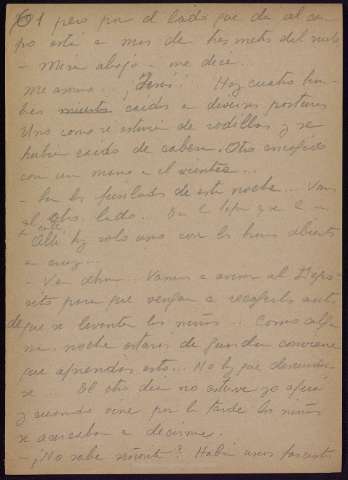 pero por el lado que da al cam
po está a mas de tres metros del suelo
- Mire abajo - me dice.
me asomo... ¡Jesús! Hay cuatro hom
bres muertos caidos a diversas posturas
Uno como si estuviera de rodillas y se
hubiera caido de cabeza. Otro encogido
con una mano en el vientre...
- Son los fusilados de esta noche... Vamos
al otro lado...
Allí hay solo uno con los brazos abiertos
en cruz...
- Ve ahora. Vamos a avisar al Depó
sito para que vengan a recogerlos antes
de que se levanten los niños... Como alguna
noche estarás de guardia conviene
que aprendas esto... No hay que descuidar
se... El otro día no estuve yo aquí
y cuando vine por la tarde los niños
se acercaban a decirme.
- ¡No sabe señorita? Había unos fascist